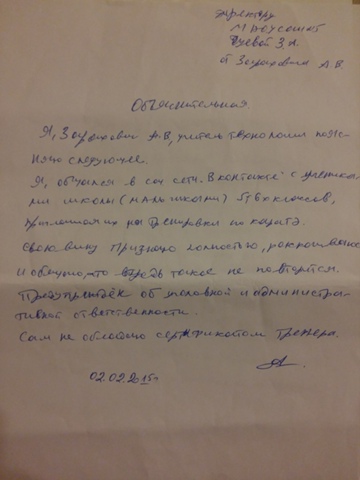 директору
МАОУ СОШ № 8
от А.В.
Объяснительная.
Я, А.В, учитель технологии пояс-
няю следующее.
Я, общался в соц сети. В контакте с ученика-
ми школы (мальчиками) 5, 6х классов,
приглашал их на тренировки по каратэ.
свою вину признаю полностью, раскаиваюсь
и обещаю, что впредь такое не повторится.
Предупреждён об уголовной и администра-
тивной ответственности.
Сам не обладаю сертификатом тренера.
02.02.2015г